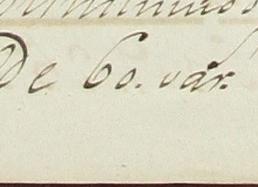 De 60. vár.